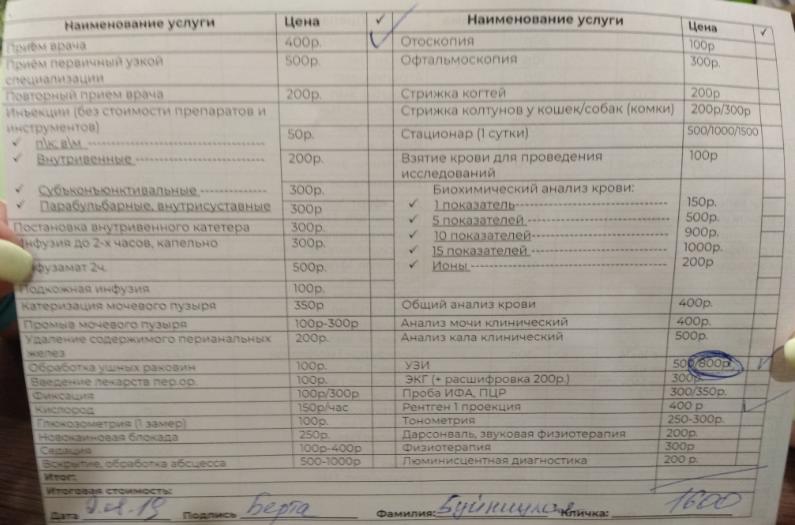 Наименование услуги Цена ✓
Приём врача 400р. ✓
Приём первичный узкой специализации 500р.
Повторный прием врача 200р.
Инъекции (без стоимости препаратов и инструментов)
✓ п\к, в\м 50р.
✓ Внутривенные 200р.
✓ Субъконъюнктивальные 300р.
✓ Парабульбарные, внутрисуставные 300р
Постановка внутривенного катетера 300р.
Инфузия до 2-х часов, капельно 300р.
Инфузамат 2ч. 500р.
Подкожная инфузия 100р.
Катеризация мочевого пузыря 350р
Промыв мочевого пузыря 100р-300р
Удаление содержимого перианальных желез 200р.
Обработка ушных раковин 100р.
Введение лекарств пер.ор. 100р.
Фиксация 100р/300р
Кислород 150р/час
Глюкозометрия (1 замер) 100р.
Новокаиновая блокада 250р.
Седация 100р-400р
Вскрытие, обработка абсцесса 500-1000р
Наименование услуги Цена ✓
Отоскопия 100р
Офтальмоскопия 300р.
Стрижка когтей 200р
Стрижка колтунов у кошек/собак (комки) 200р/300р
Стационар (1 сутки) 500/1000/1500
Взятие крови для проведения исследований 100р
Биохимический анализ крови:
✓ 1 показатель 150р.
✓ 5 показателей 500р.
✓ 10 показателей 900р.
✓ 15 показателей 1000р.
✓ Ионы 200р
Общий анализ крови 400р.
Анализ мочи клинический 400р.
Анализ кала клинический 500р.
УЗИ 500/800р. ✓
ЭКГ (+ расшифровка 200р.) 300р.
Проба ИФА, ПЦР 300/350р.
Рентген 1 проекция 400 р ✓
Тонометрия 250-300р.
Дарсонваль, звуковая физиотерапия 200р.
Физиотерапия 300р
Люминисцентная диагностика 200 р.
Итог:
Итоговая стоимость: 1600
Дата Подпись Берта Фамилия: Кличка: